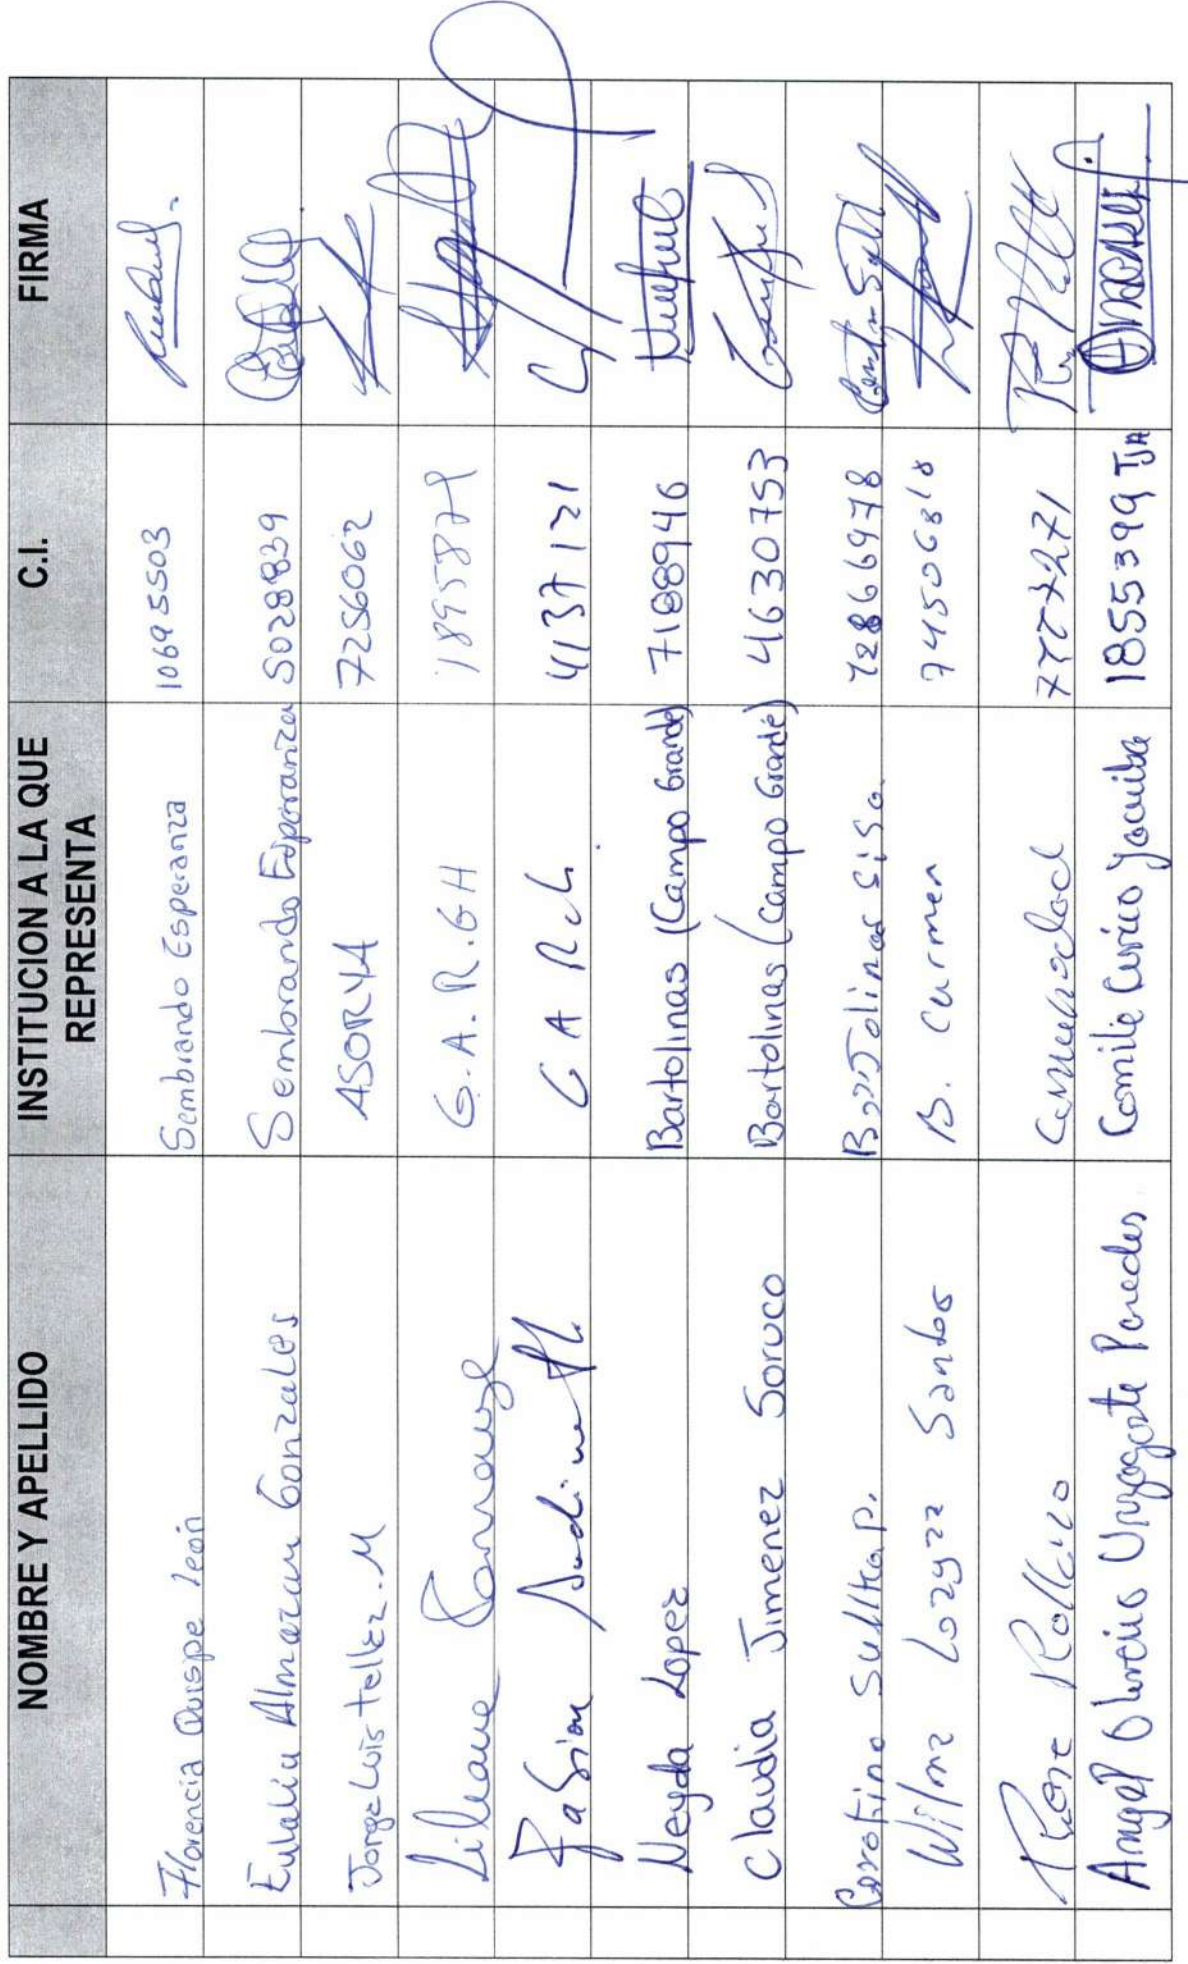 NOMBRE Y APELLIDO INSTITUCION A LA QUE REPRESENTA C.I. FIRMA
Florencia Quispe León Sembrando Esperanza 10695503
Eulalia Almazan Gonzales Sembrando Esperanza 5028839
Jorge Luis Tellez. M ASORYA 7256062
Liliana G.A.R.GH 1895879
Fabian G A R Ch 4137121
Neyda Lopez Bartolinas (Campo Grande) 7188946
Claudia Jimenez Soruco Bartolinas (Campo Grande) 4630753
Sullka P. Bartolinas Sisa.
Wilma Loayza Santos B. Carmen
Rollano Comunidad
Angel Uzagaste Paredes Comité Cívico Yacuiba 1855399 TJA